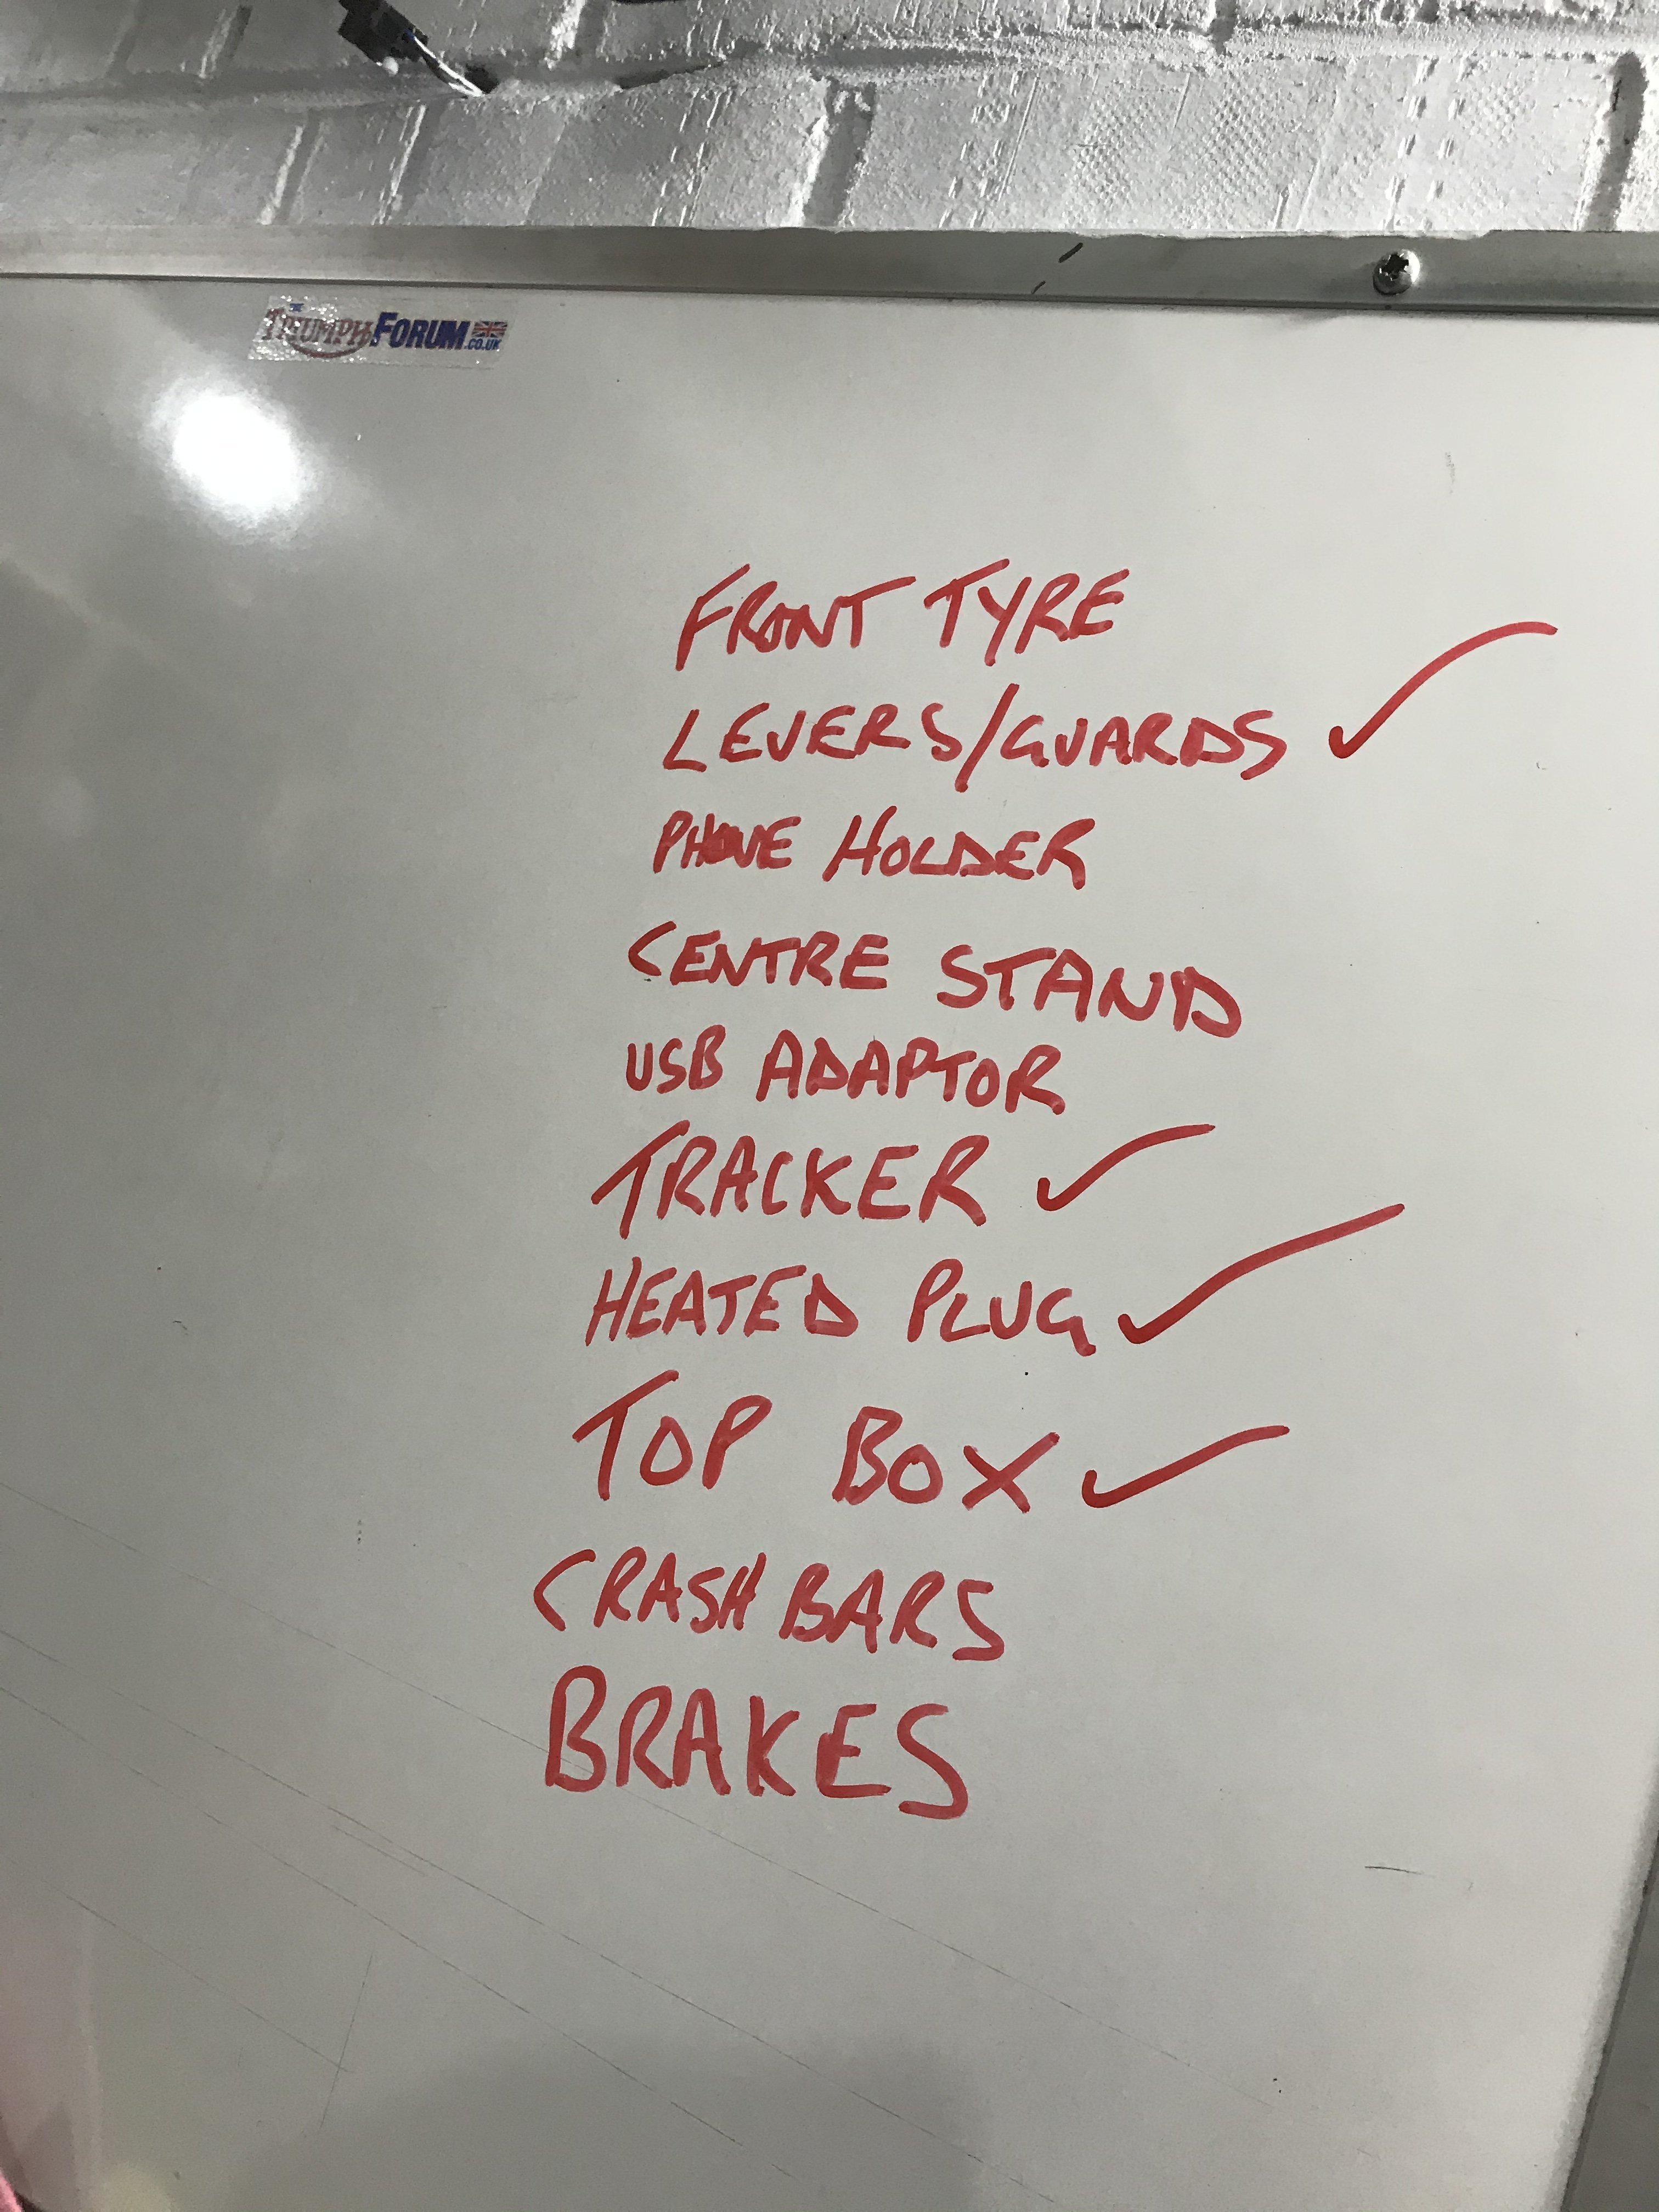 TRIUMPH FORUM.CO.UK
FRONT TYRE
LEVERS/GUARDS ✓
PHONE HOLDER
CENTRE STAND
USB ADAPTOR
TRACKER ✓
HEATED PLUG ✓
TOP BOX ✓
CRASH BARS
BRAKES